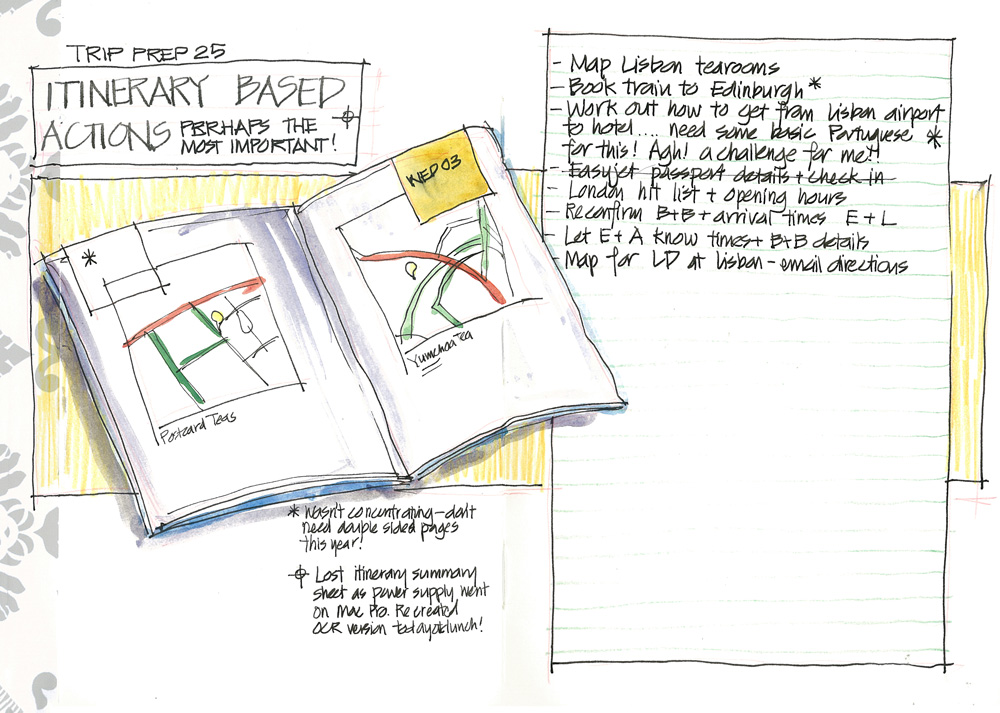 TRIP PREP 25
ITINERARY BASED
ACTIONS PERHAPS THE
MOST IMPORTANT!
- Map Lisbon tearooms
- Book train to Edinburgh *
- Work out how to get from Lisbon airport
to hotel.... need some basic Portuguese *
for this! Agh! a challenge for me!!
- Easyjet passport details + check in
- London hit list + opening hours
- Reconfirm B+B + arrival times E + L
- Let E + A know times + B+B details
- Map for LD at Lisbon - email directions
WED 03
*
Yumchaa Tea
Postcard Teas
* Wasn't concentrating - don't
need double sided pages
this year!
Lost itinerary summary
sheet as power supply went
on Mac Pro. Recreated
OCR version today @ lunch!